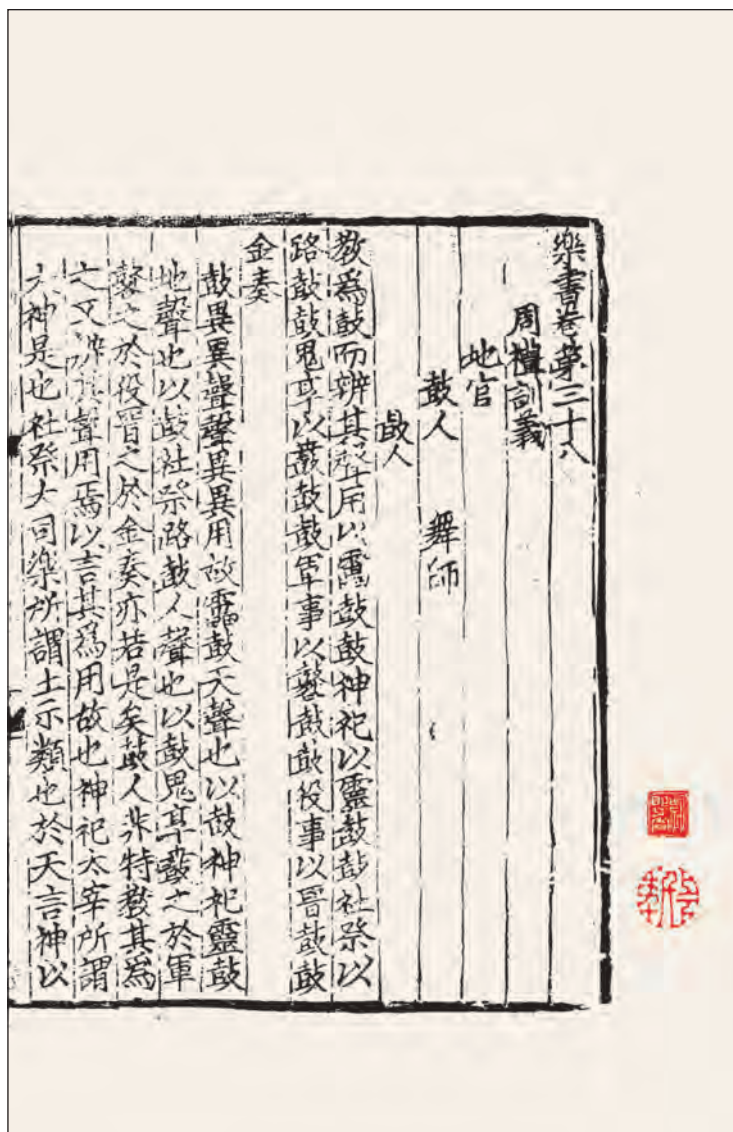 樂書卷第三十八
周禮訓義
地官
鼓人　舞師
鼓人
教爲鼓而辨其聲用以靁鼓鼓神祀以靈鼓鼓社祭以
路鼓鼓鬼享以鼖鼓鼓軍事以鼛鼓鼓役事以晉鼓鼓
金奏
鼓異異聲聲異異用故靁鼓天聲也以鼓神祀靈鼓
地聲也以鼓社祭路鼓人聲也以鼓鬼享鼖之於軍
鼛之於役晉之於金奏亦若是矣鼓人非特教其爲
之又辨其聲用焉以言其爲用故也神祀太宰所謂
大神是也社祭大司樂所謂土示類也於天言神以